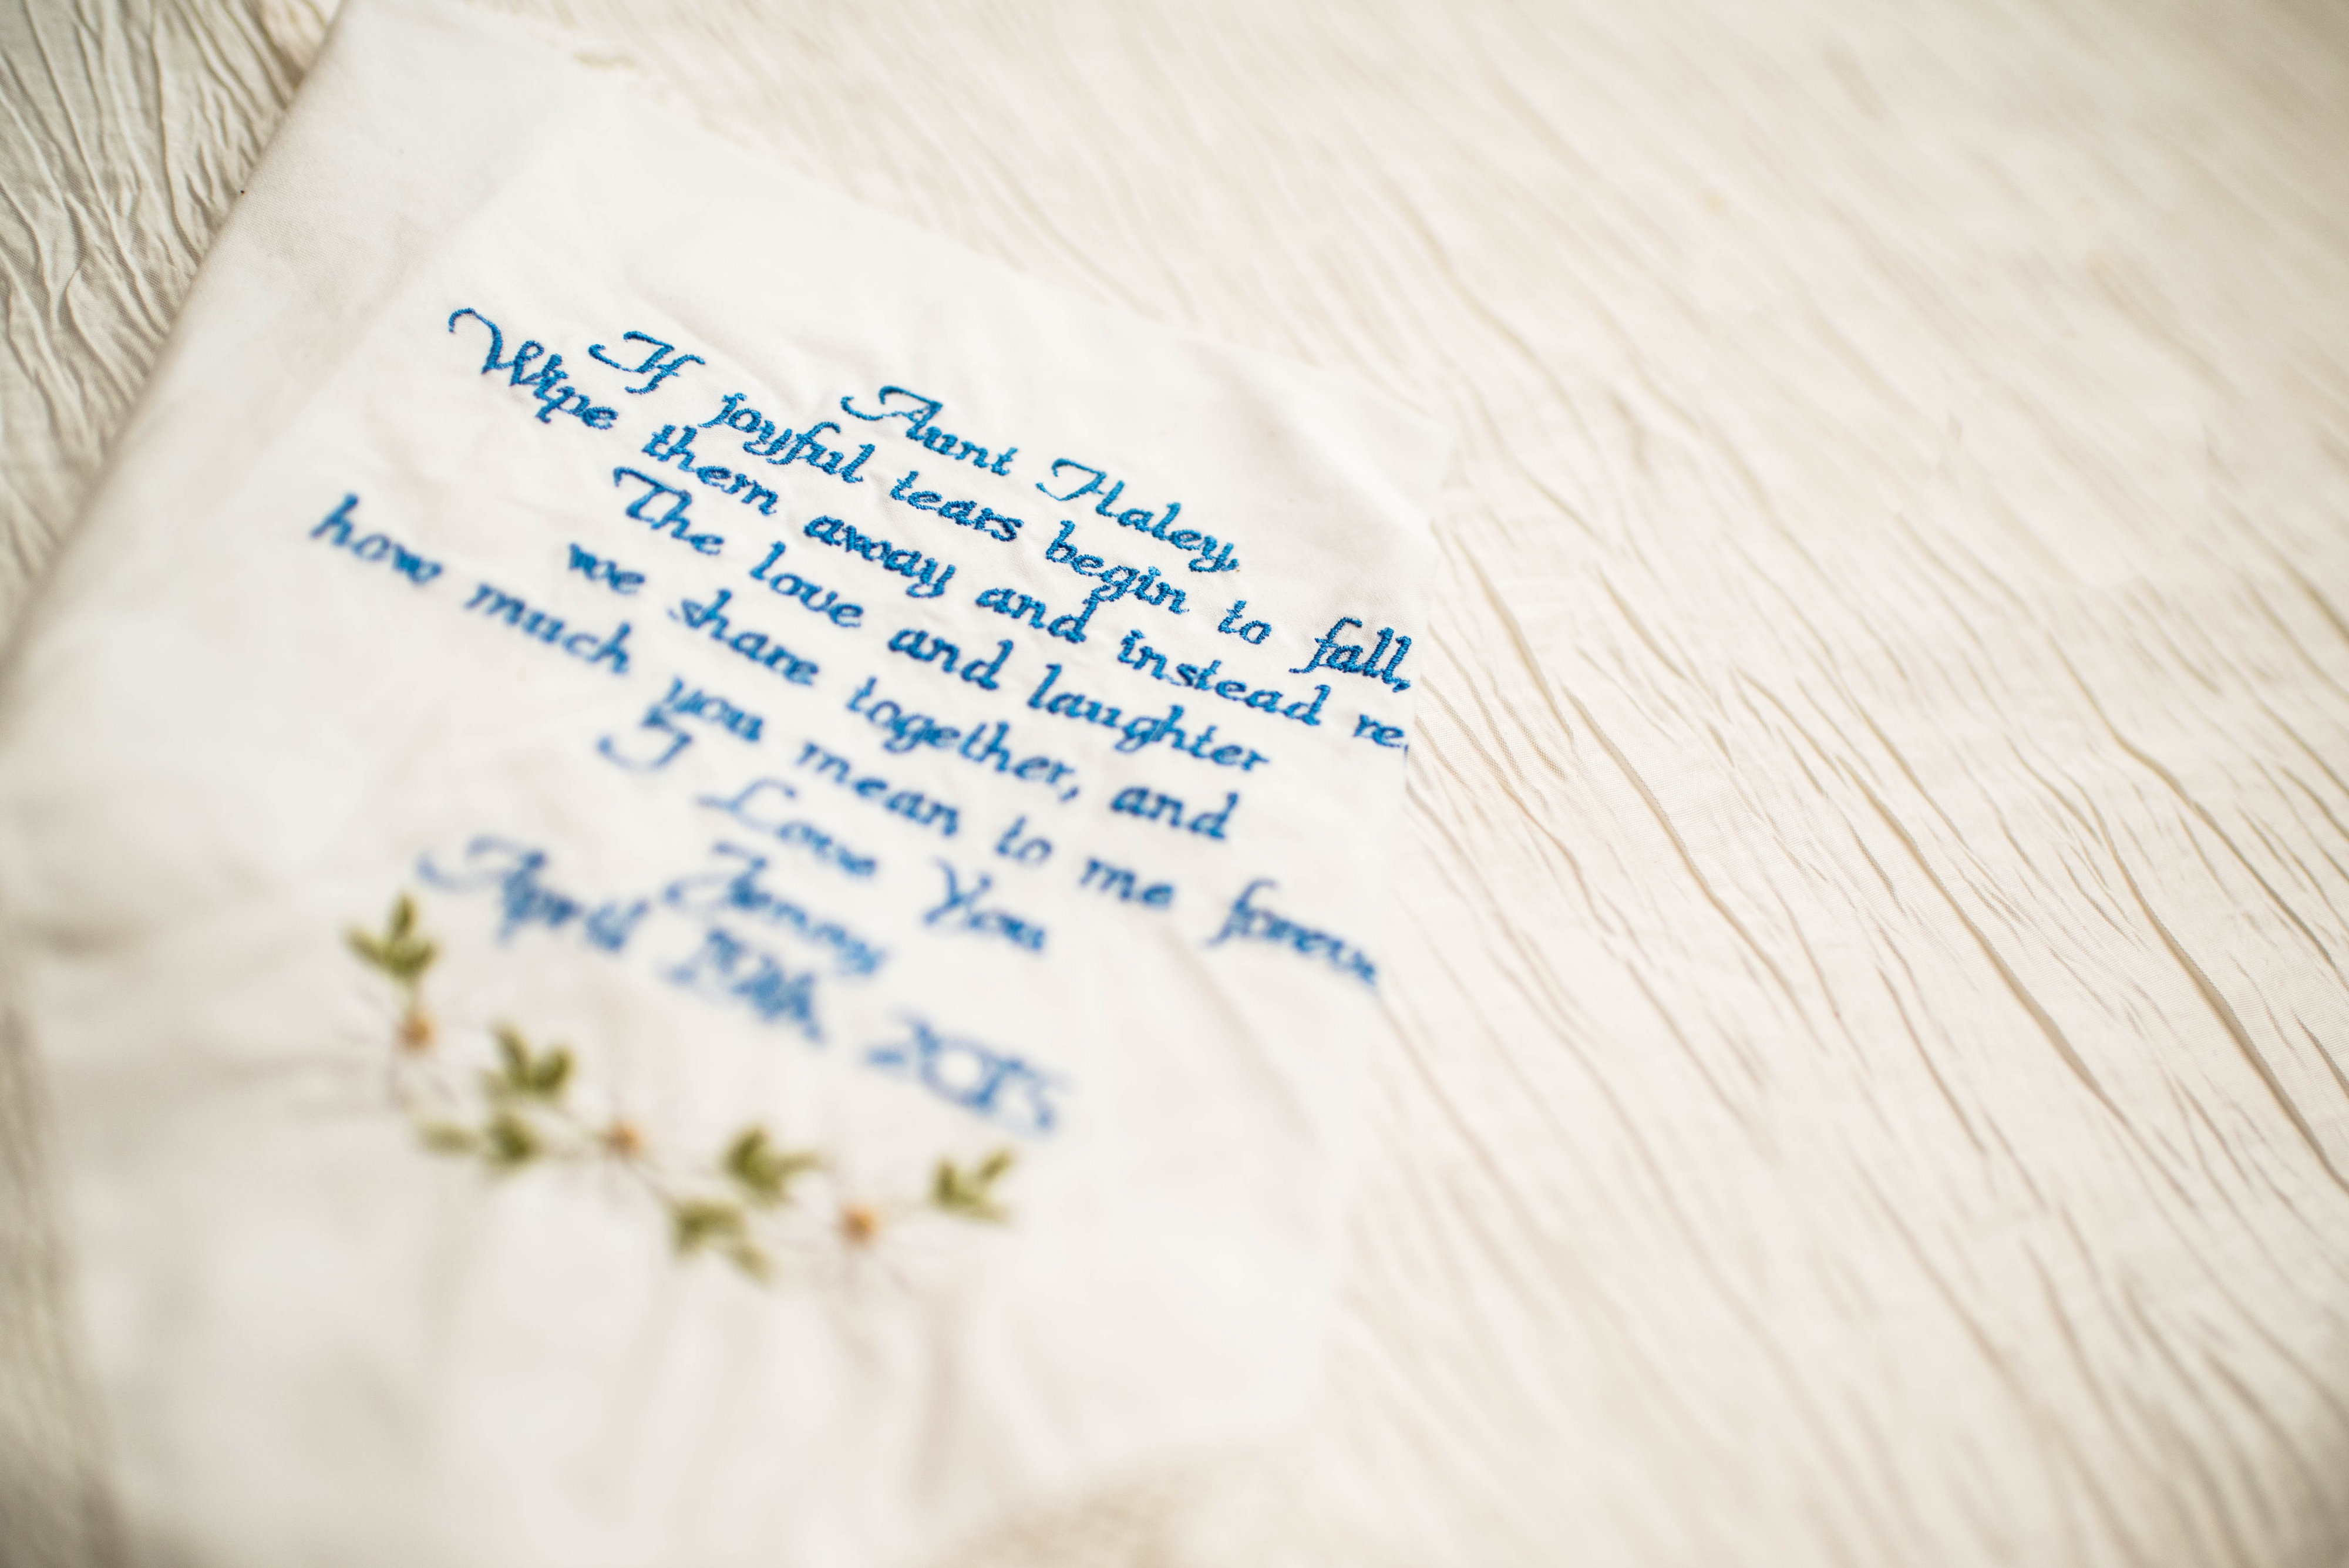 Aunt Haley,
If joyful tears begin to fall,
Wipe them away and instead re
The love and laughter
we share together, and
how much you mean to me foreve
I Love You
Jenny
April 2015